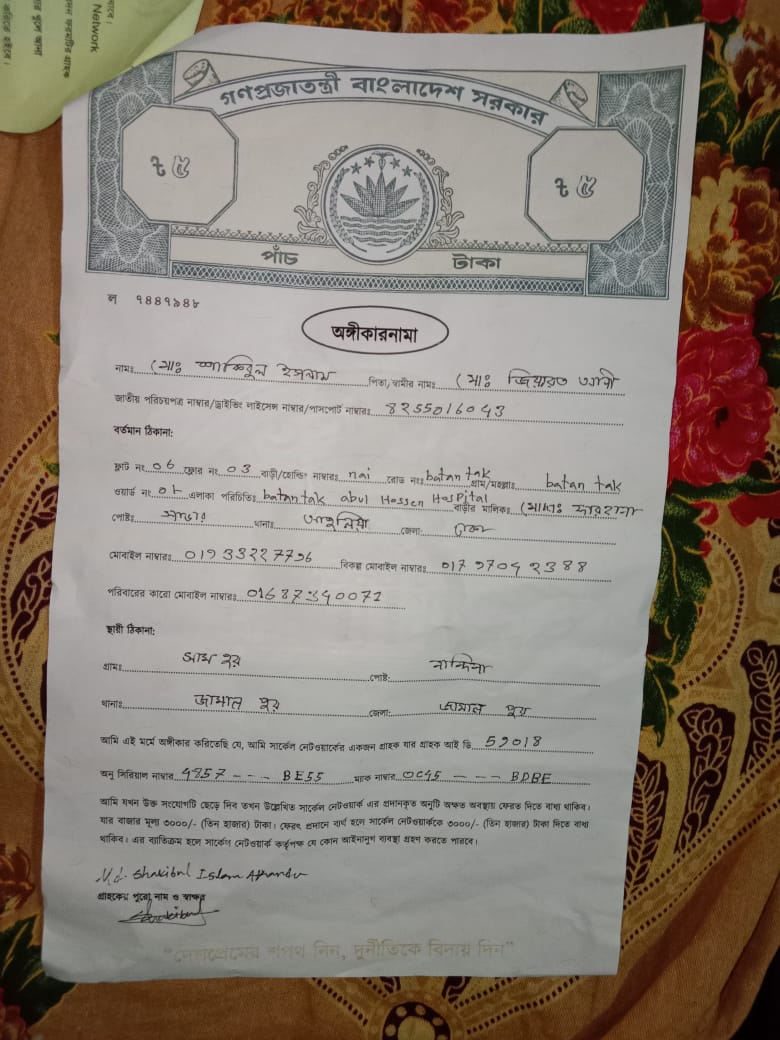 Network
গণপ্রজাতন্ত্রী বাংলাদেশ সরকার
৳ ৫ ৳ ৫
পাঁচ টাকা
ল ৭৪৪৭৯৪৮
অঙ্গীকারনামা
নামঃ মোঃ শাকিবুল ইসলাম পিতা/স্বামীর নামঃ মোঃ জিয়ারত আলী
জাতীয় পরিচয়পত্র নাম্বার/ড্রাইভিং লাইসেন্স নাম্বার/পাসপোর্ট নাম্বারঃ 8255016043
বর্তমান ঠিকানা:
ফ্লাট নং 06 ফ্লোর নং 03 বাড়ী/হোল্ডিং নাম্বারঃ nai রোড নংঃ batan tak গ্রাম/মহল্লাঃ batan tak
ওয়ার্ড নং এলাকা পরিচিতিঃ batan tak abul Hossen Hospital বাড়ীর মালিকঃ মোসাঃ ফারহানা
পোষ্টঃ সাভার থানাঃ আশুলিয়া জেলা: ঢাকা
মোবাইল নাম্বারঃ 01933227796 বিকল্প মোবাইল নাম্বারঃ 01797042388
পরিবারের কারো মোবাইল নাম্বারঃ 01687340071
স্থায়ী ঠিকানা:
গ্রামঃ পোষ্ট: নান্দিনা
থানাঃ জামাল পুর জেলা: জামাল পুর
আমি এই মর্মে অঙ্গীকার করিতেছি যে, আমি সার্কেল নেটওয়ার্কের একজন গ্রাহক যার গ্রাহক আই ডি 59018
অনু সিরিয়াল নাম্বার 4857 - - - BE55 ম্যাক নাম্বার 0C45 - - - BDBE
আমি যখন উক্ত সংযোগটি ছেড়ে দিব তখন উল্লেখিত সার্কেল নেটওয়ার্ক এর প্রদানকৃত অনুটি অক্ষত অবস্থায় ফেরত দিতে বাধ্য থাকিব।
যার বাজার মূল্য ৩০০০/- (তিন হাজার) টাকা। ফেরৎ প্রদানে ব্যর্থ হলে সার্কেল নেটওয়ার্ককে ৩০০০/- (তিন হাজার) টাকা দিতে বাধ্য
থাকিব। এর ব্যাতিক্রম হলে সার্কেল নেটওয়ার্ক কর্তৃপক্ষ যে কোন আইনানুগ ব্যবস্থা গ্রহণ করতে পারবে।
Md. Shakibul Islam
গ্রাহকের পুরো নাম ও স্বাক্ষর
Shakibul
"দেশপ্রেমের শপথ নিন, দুর্নীতিকে বিদায় দিন"